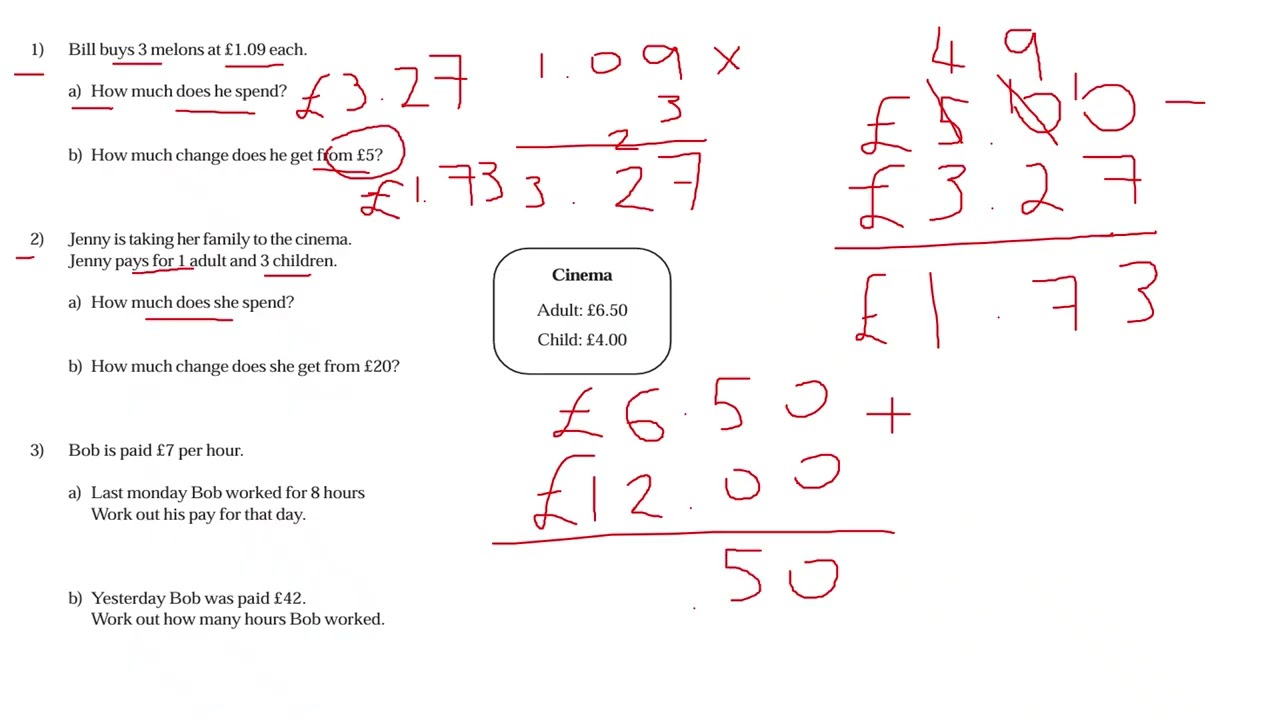 1) Bill buys 3 melons at £1.09 each.
a) How much does he spend? £3.27
b) How much change does he get from £5?
£1.73
1.09 ×
3
2
3.27
4 9
£5.00 1 0 −
£3.27
£1.73
2) Jenny is taking her family to the cinema.
Jenny pays for 1 adult and 3 children.
a) How much does she spend?
b) How much change does she get from £20?
Cinema
Adult: £6.50
Child: £4.00
£6.50 +
£12.00
.50
3) Bob is paid £7 per hour.
a) Last monday Bob worked for 8 hours
Work out his pay for that day.
b) Yesterday Bob was paid £42.
Work out how many hours Bob worked.